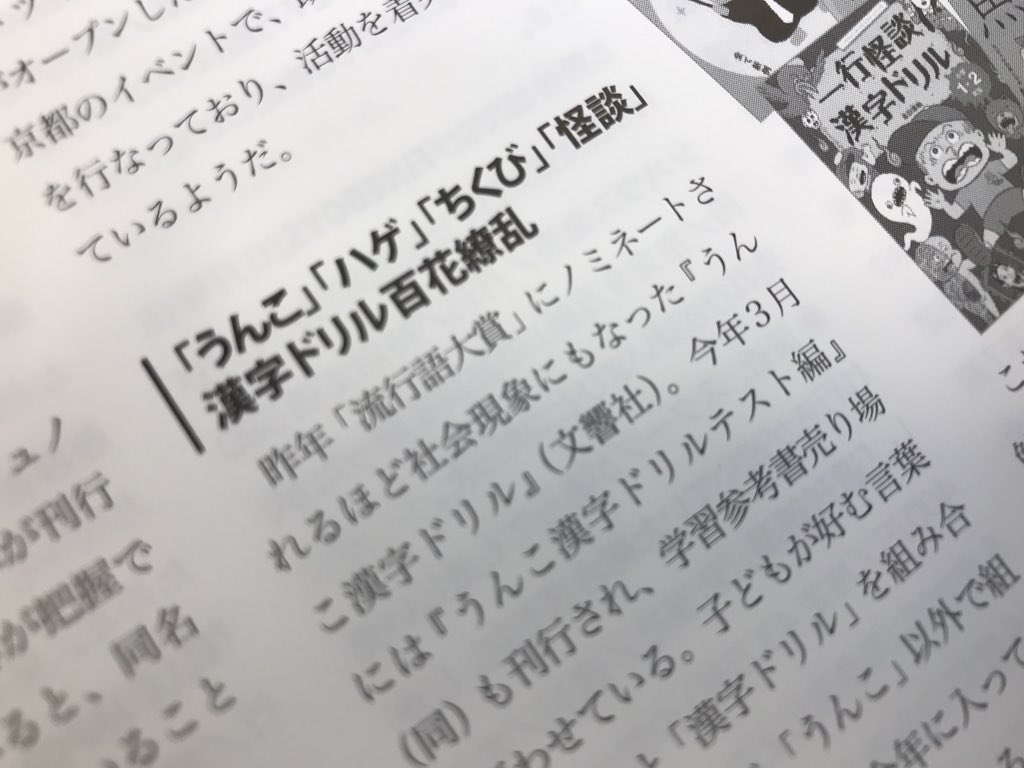 オープンした
京都のイベントで、
を行なっており、活動を着
ているようだ。
「うんこ」「ハゲ」「ちくび」「怪談」
漢字ドリル百花繚乱
昨年「流行語大賞」にノミネートさ
れるほど社会現象にもなった『うん
こ漢字ドリル』(文響社)。今年3月
には『うんこ漢字ドリルテスト編』
(同)も刊行され、学習参考書売り場
わせている。子どもが好む言葉
「漢字ドリル」を組み合
「うんこ」以外で組
年に入って
ュノ
が刊行
が把握で
ると、同名
ること
一行怪談
漢字ドリル
1・2